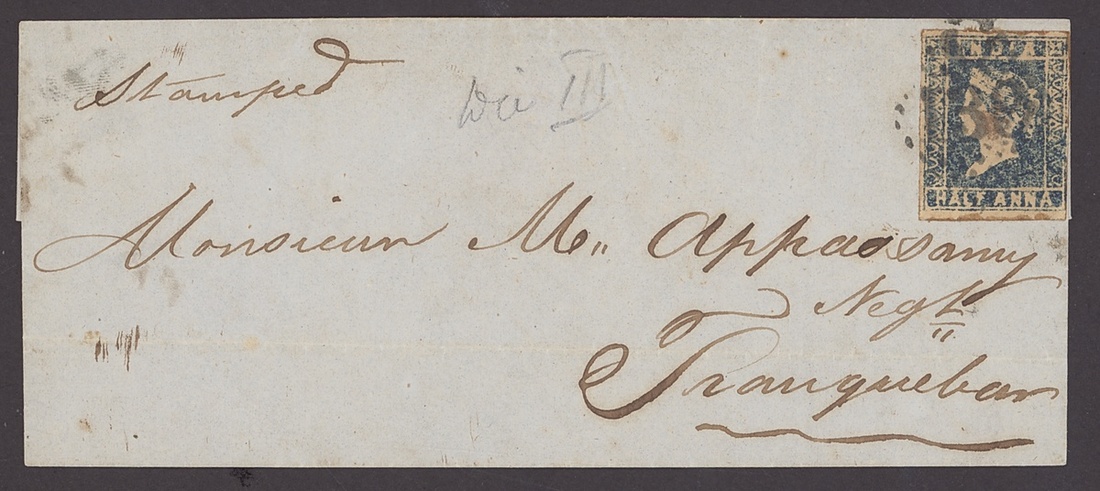 Stamped
Die III
INDIA
HALF ANNA
Monsieur M„ Appassamy
Negt
Tranquebar